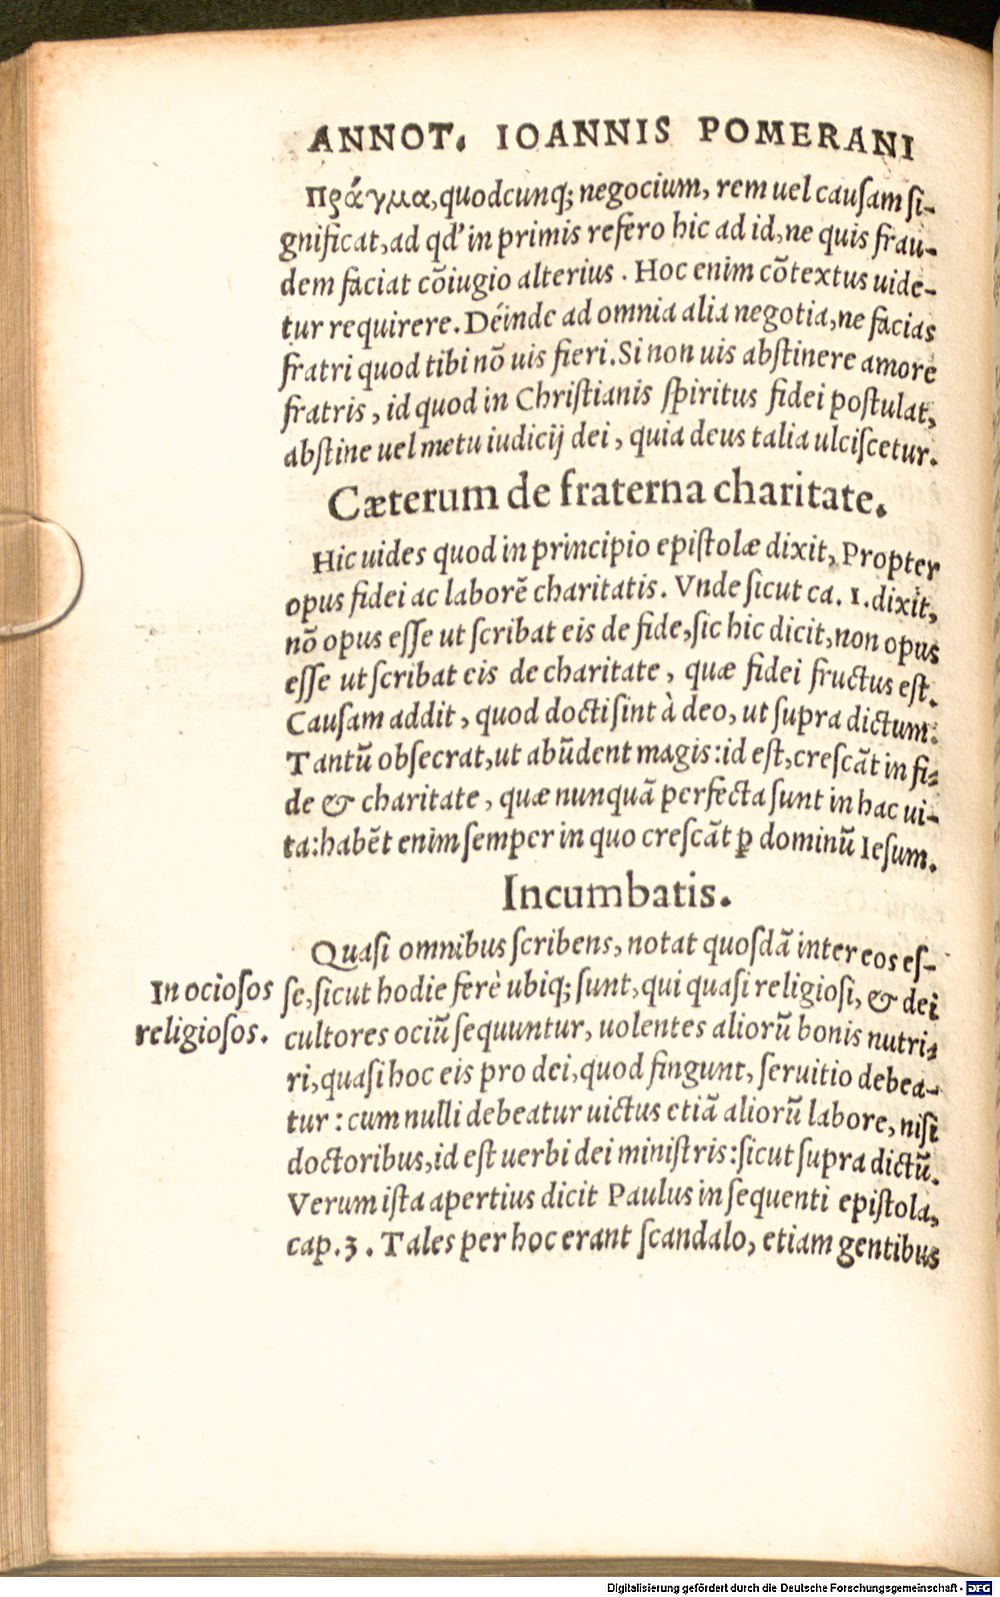 ANNOT. IOANNIS POMERANI
Πρᾶγμα, quodcunq; negocium, rem uel causam si-
gnificat, ad qd' in primis refero hic ad id, ne quis frau-
dem faciat cõiugio alterius. Hoc enim cõtextus uide-
tur requirere. Déinde ad omnia alia negotia, ne facias
fratri quod tibi nõ uis fieri. Si non uis abstinere amore
fratris, id quod in Christianis spiritus fidei postulat,
abstine uel metu iudicij dei, quia deus talia ulciscetur.
Cæterum de fraterna charitate.
Hic uides quod in principio epistolæ dixit, Propter
opus fidei ac laborẽ charitatis. Vnde sicut ca. 1. dixit,
nõ opus esse ut scribat eis de fide, sic hic dicit, non opus
esse ut scribat eis de charitate, quæ fidei fructus est.
Causam addit, quod docti sint à deo, ut supra dictum.
Tantũ obsecrat, ut abũdent magis: id est, crescãt in fi-
de & charitate, quæ nunquã perfecta sunt in hac ui-
ta: habẽt enim semper in quo crescãt ꝑ dominũ Iesum.
Incumbatis.
Quasi omnibus scribens, notat quosdã inter eos es-
In ociosos
religiosos.
se, sicut hodie ferè ubiq; sunt, qui quasi religiosi, & dei
cultores ociũ sequuntur, uolentes aliorũ bonis nutri-
ri, quasi hoc eis pro dei, quod fingunt, seruitio debea-
tur: cum nulli debeatur uictus etiã aliorũ labore, nisi
doctoribus, id est uerbi dei ministris: sicut supra dictũ.
Verum ista apertius dicit Paulus in sequenti epistola,
cap. 3. Tales per hoc erant scandalo, etiam gentibus
Digitalisierung gefördert durch die Deutsche Forschungsgemeinschaft - DFG